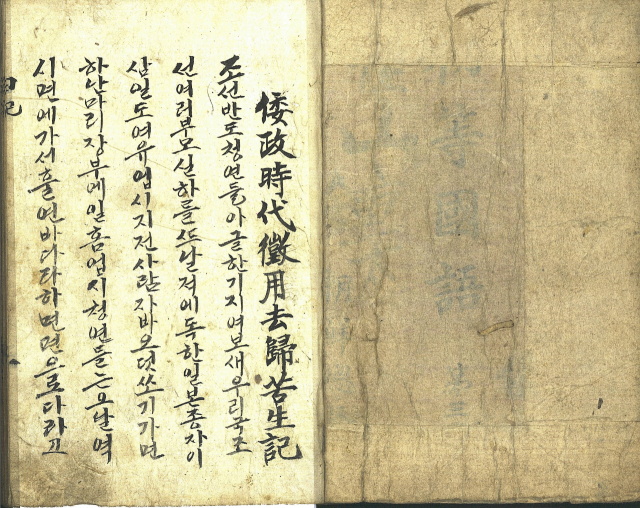 倭政時代徵用去歸苦生記
조선반도청연들아글한기지여보새우리국조
선여러부모실하를뜨날적에독한일본종자이
삼일도여유업시지전사람자바오덧쏘기가면
하난마리장부에일홈업시청연들는오날역
시면에가서훌연바다다하면면으로다라고
日記
等國語